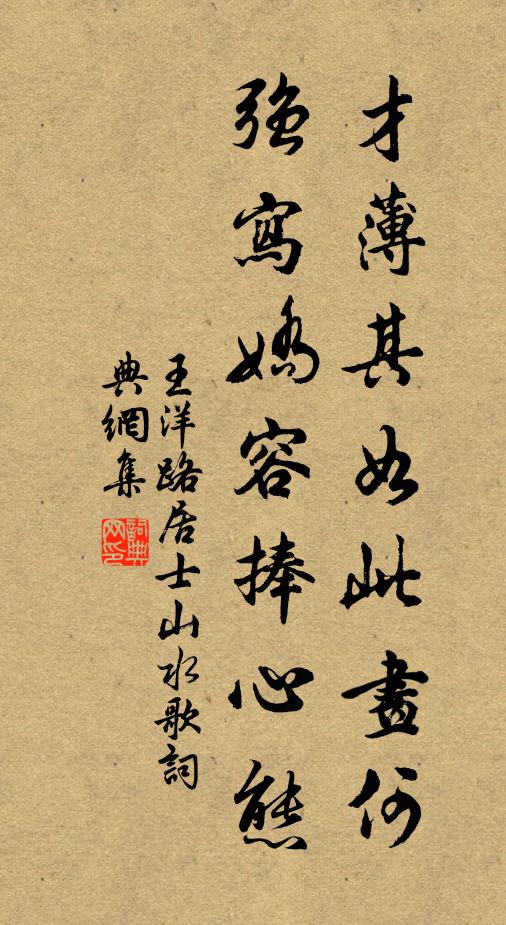 才薄其如此畫何
強寫嬌容捧心態
王洋路居士山水歌詞
典網集
詞典
网印